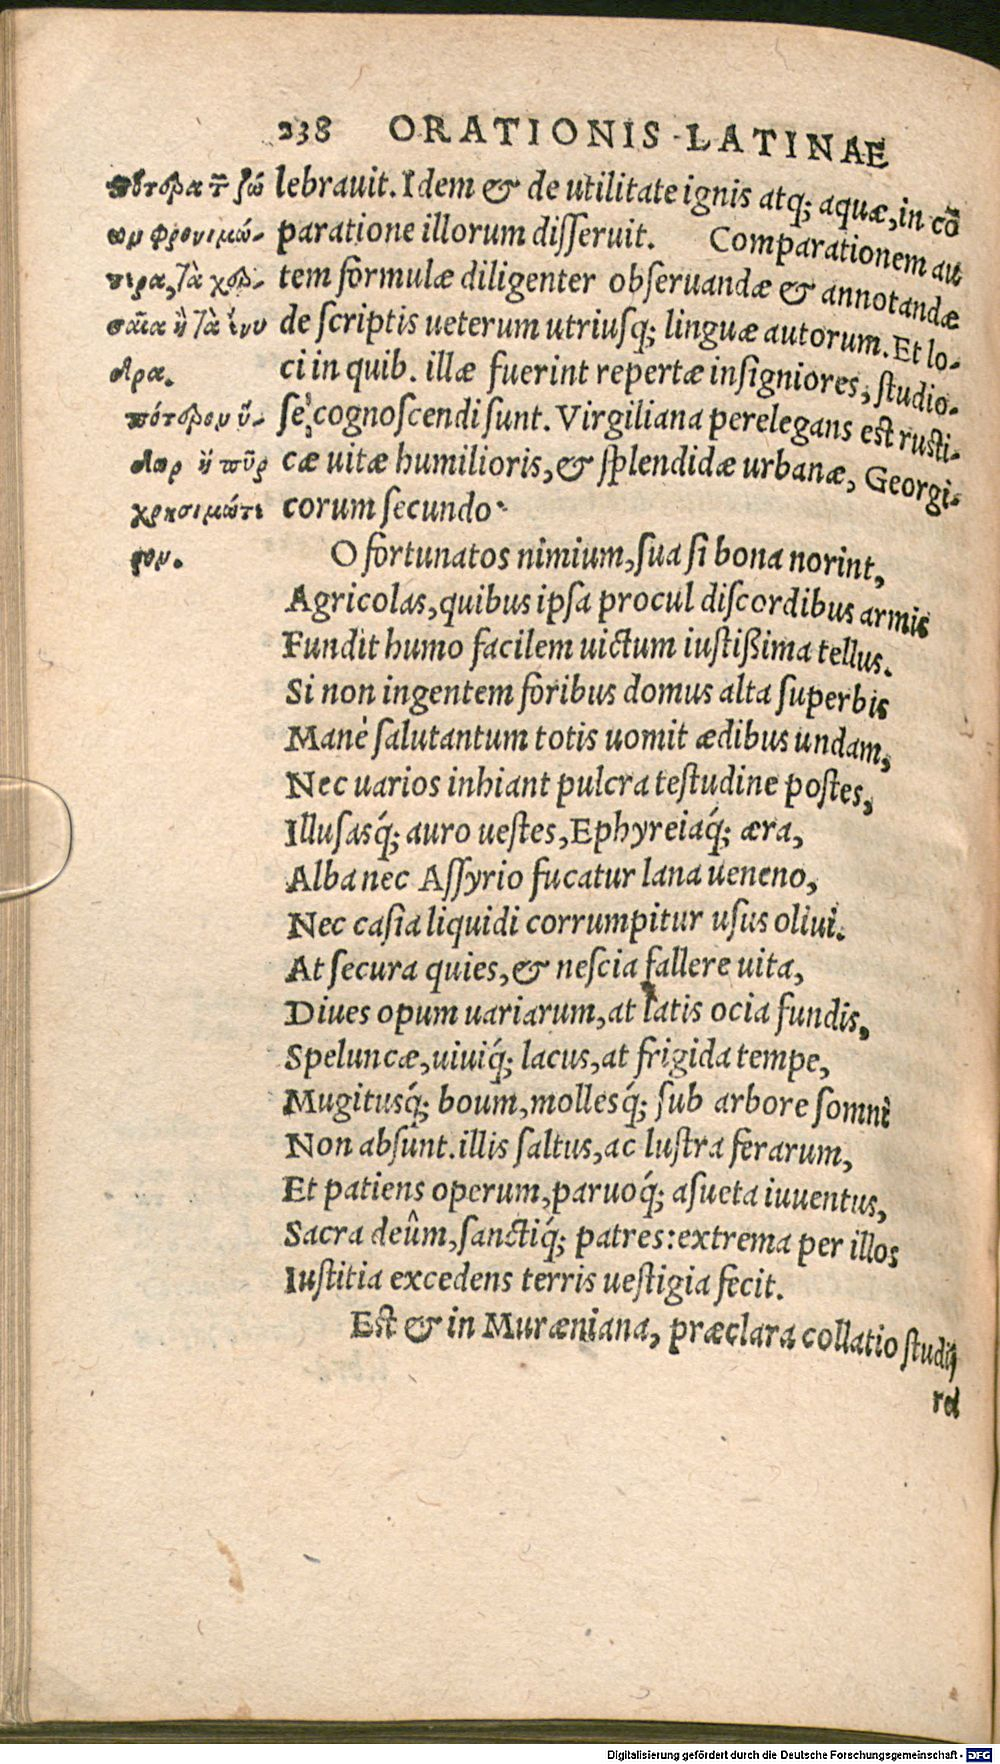 238 ORATIONIS LATINAE
lebrauit. Idem & de utilitate ignis atq; aquæ, in cō
paratione illorum disseruit. Comparationem au
tem formulæ diligenter obseruandæ & annotandæ
de scriptis ueterum utriusq; linguæ autorum. Et lo-
ci in quib. illæ fuerint repertæ insigniores, studio-
sè cognoscendi sunt. Virgiliana perelegans est rusti-
cæ uitæ humilioris, & splendidæ urbanæ, Georgi-
corum secundo.
πότερα τ ζώ
ων φρονιμώ-
τερα, τὰ χερ-
σαῖα ἢ τὰ ἔνυ
δρα.
πότερον ὕ-
δωρ ἢ πῦρ
χρησιμώτε
ρον.
O fortunatos nimium, sua si bona norint,
Agricolas, quibus ipsa procul discordibus armis
Fundit humo facilem uictum iustißima tellus.
Si non ingentem foribus domus alta superbis
Manè salutantum totis uomit ædibus undam,
Nec uarios inhiant pulcra testudine postes,
Illusasq́; auro uestes, Ephyreiaq́; æra,
Alba nec Assyrio fucatur lana ueneno,
Nec casia liquidi corrumpitur usus oliui.
At secura quies, & nescia fallere uita,
Diues opum uariarum, at latis ocia fundis,
Speluncæ, uiuiq́; lacus, at frigida tempe,
Mugitusq́; boum, mollesq́; sub arbore somni
Non absunt. illis saltus, ac lustra ferarum,
Et patiens operum, paruoq́; asueta iuuentus,
Sacra deûm, sanctiq́; patres: extrema per illos
Iustitia excedens terris uestigia fecit.
Est & in Muræniana, præclara collatio studij
rei
Digitalisierung gefördert durch die Deutsche Forschungsgemeinschaft - DFG